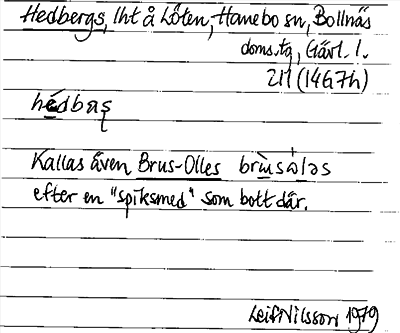 Hedbergs, lht å Löten, Hanebo sn, Bollnäs
doms.tg, Gävl. l.
211 (14G7h)
hédbaʂ
Kallas även Brus-Olles brùsòləs
efter en "spiksmed" som bott där.
Leif Nilsson 1979